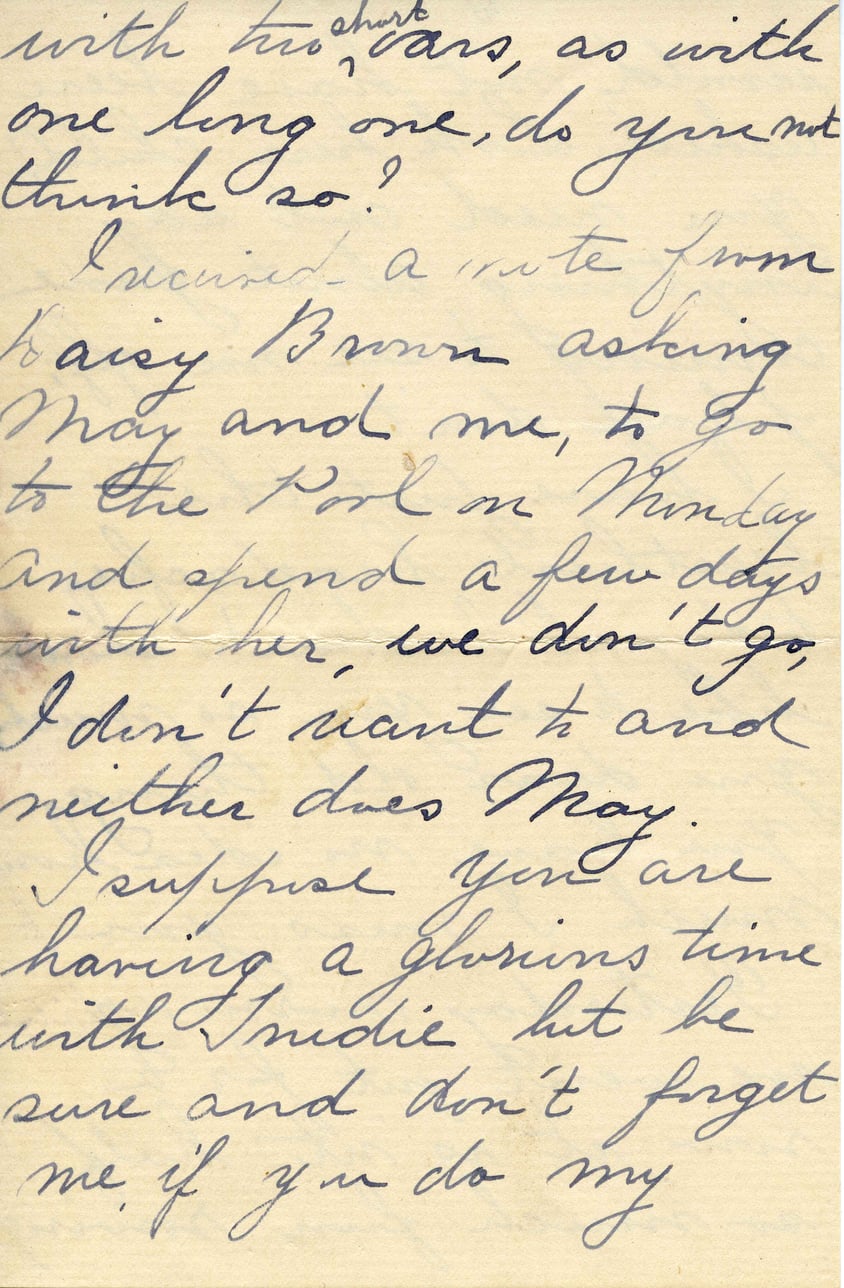 with two short oars, as with
one long one, do you not
think so?
I received a note from
Daisy Brown asking
May and me, to go
to the Pool on Monday
and spend a few days
with her, we don't go,
I don't want to and
neither does May.
I suppose you are
having a glorious time
with but be
sure and don't forget
me, if you do my